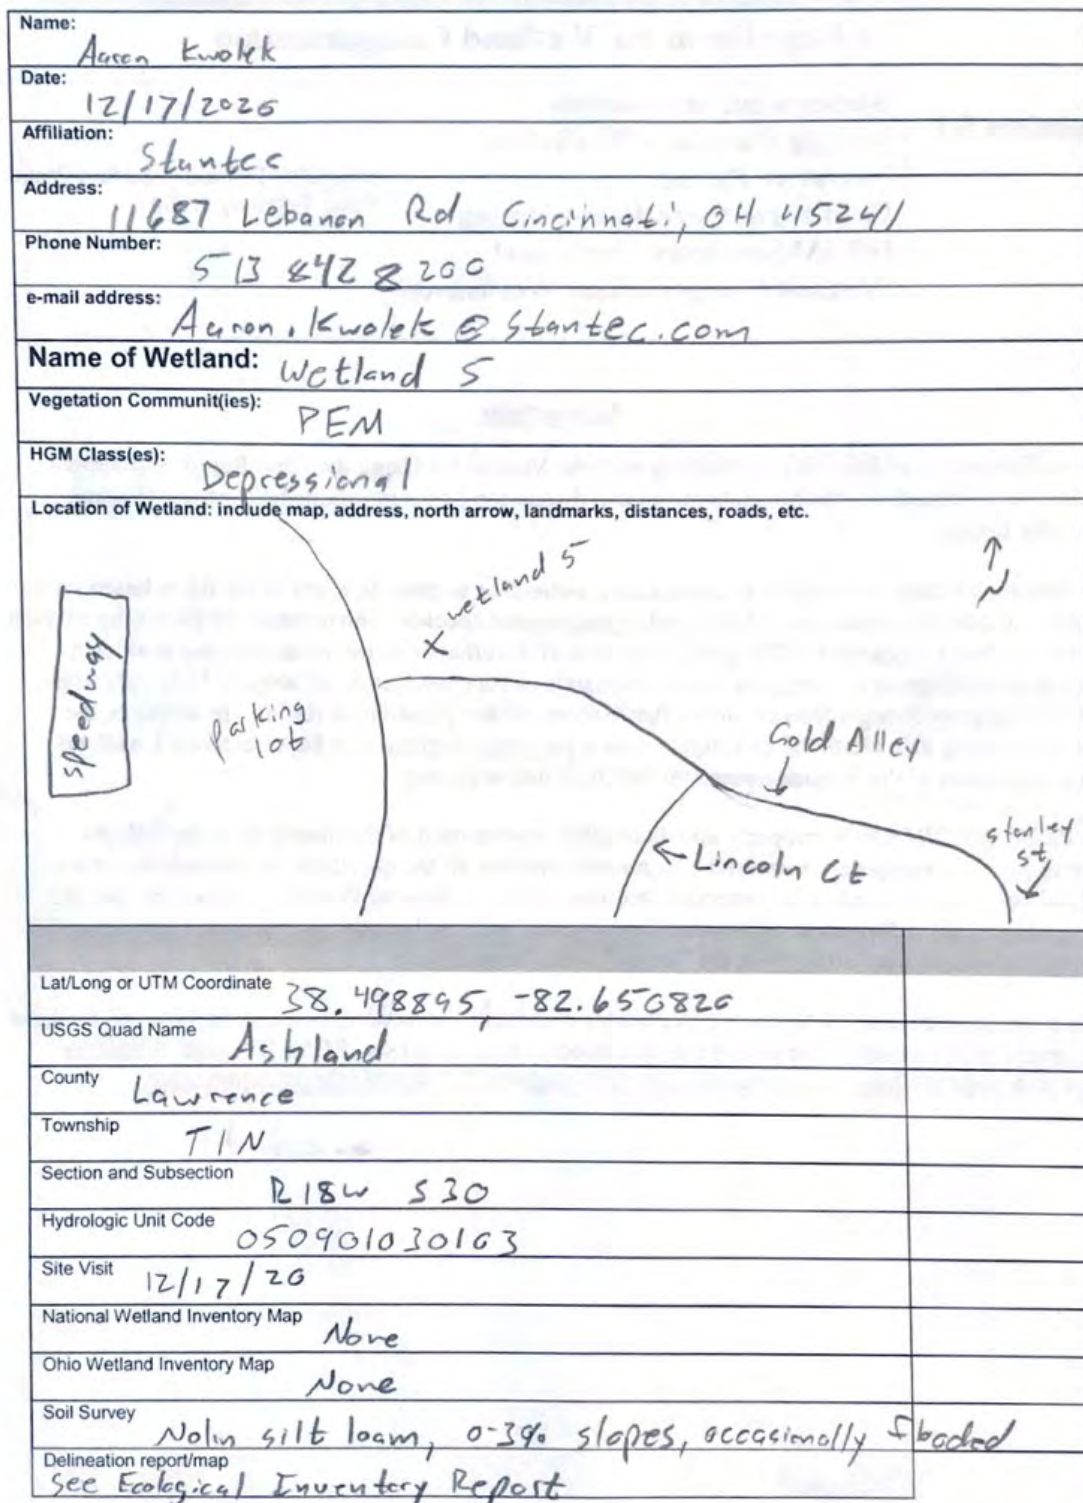 Name:
Aaron Kwolek
Date:
12/17/2020
Affiliation:
Stantec
Address:
11687 Lebanon Rd, Cincinnati, OH 45241
Phone Number:
513 842 8200
e-mail address:
Aaron.Kwolek@stantec.com
Name of Wetland: Wetland 5
Vegetation Communit(ies):
PEM
HGM Class(es):
Depressional
Location of Wetland: include map, address, north arrow, landmarks, distances, roads, etc.
N
X wetland 5
Speedway
parking lot
Gold Alley
Lincoln Ct
Stanley St
Lat/Long or UTM Coordinate 38.498895, -82.650820
USGS Quad Name
Ashland
County
Lawrence
Township
T1N
Section and Subsection
R18W S30
Hydrologic Unit Code
050901030103
Site Visit
12/17/20
National Wetland Inventory Map
None
Ohio Wetland Inventory Map
None
Soil Survey
Nolin silt loam, 0-3% slopes, occasionally flooded
Delineation report/map
See Ecological Inventory Report